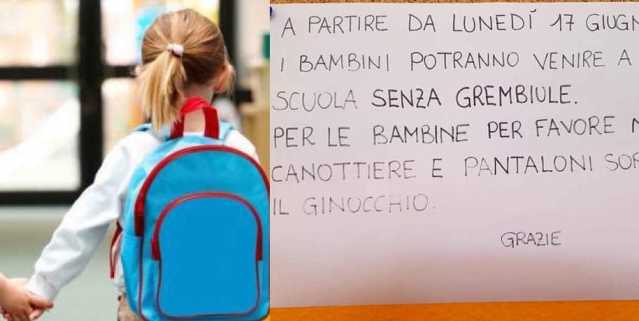 A PARTIRE DA LUNEDÍ 17
I BAMBINI POTRANNO VENIRE A
SCUOLA SENZA GREMBIULE.
PER LE BAMBINE PER FAVORE
CANOTTIERE E PANTALONI
IL GINOCCHIO.
GRAZIE